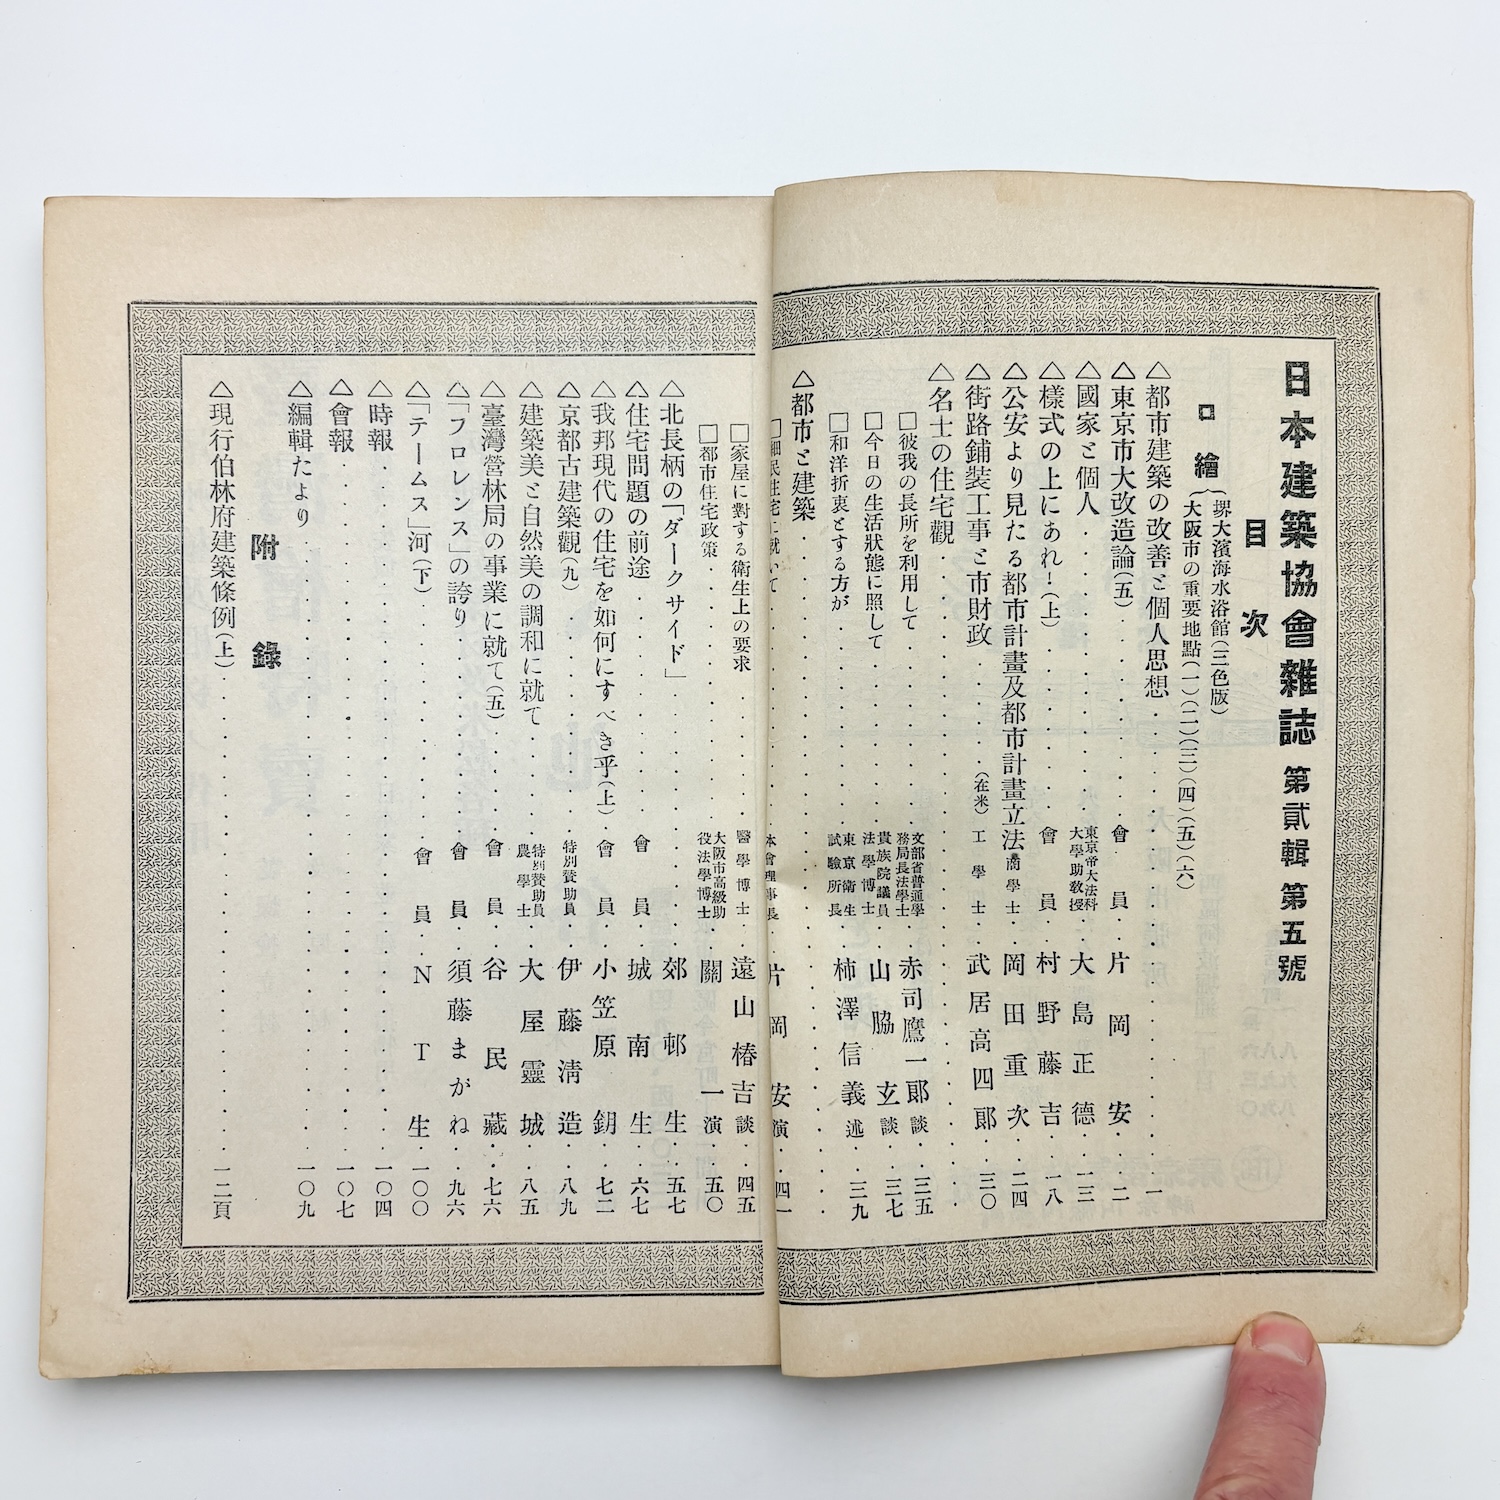 日本建築協會雜誌 第貳輯 第五號
目次
口繪
堺大濱海水浴館(三色版)
大阪市の重要地點(一)(二)(三)(四)(五)(六)
△都市建築の改善と個人思想・・・・・一
△東京市大改造論(五)・・・・・會員・片岡安・二
△國家と個人・・・・・東京帝大法科大學助敎授・大島正德・一三
△樣式の上にあれ!(上)・・・・・會員・村野藤吉・一八
△公安より見たる都市計畫及都市計畫立法・商學士・岡田重次・二四
△街路鋪裝工事と市財政・・・・・(在米)工學士・武居高四郎・三〇
△名士の住宅觀・・・・・
□彼我の長所を利用して・・・・・文部省普通學務局長法學士・赤司鷹一郎談・三五
□今日の生活狀態に照して・・・・・貴族院議員法學博士・山脇玄談・三七
□和洋折衷とする方が・・・・・東京衞生試驗所長・柿澤信義述・三九
△都市と建築・・・・・
□細民住宅に就いて・・・・・本會理事長・片岡安演・四一
□家屋に對する衞生上の要求・・・・・醫學博士・遠山椿吉談・四五
□都市住宅政策・・・・・大阪市高級助役法學博士・關一演・五〇
△北長柄の「ダークサイド」・・・・・郊邨生・五七
△住宅問題の前途・・・・・會員・城南生・六七
△我邦現代の住宅を如何にすべき乎(上)・會員・小笠原鈅・七二
△京都古建築觀(九)・・・・・特別贊助員・伊藤淸造・八九
△建築美と自然美の調和に就て・・・・・特別贊助員農學士・大屋靈城・八五
△臺灣營林局の事業に就て(五)・・・・・會員・谷民藏・七六
△「フロレンス」の誇り・・・・・會員・須藤まがね・九六
△「テームス」河(下)・・・・・會員・NT生・一〇〇
△時報・・・・・一〇四
△會報・・・・・一〇七
△編輯たより・・・・・一〇九
附錄
△現行伯林府建築條例(上)・・・・・一二頁